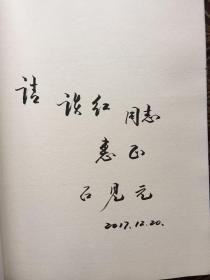 请 谈红 同志
惠正
石见元
2017.12.20.